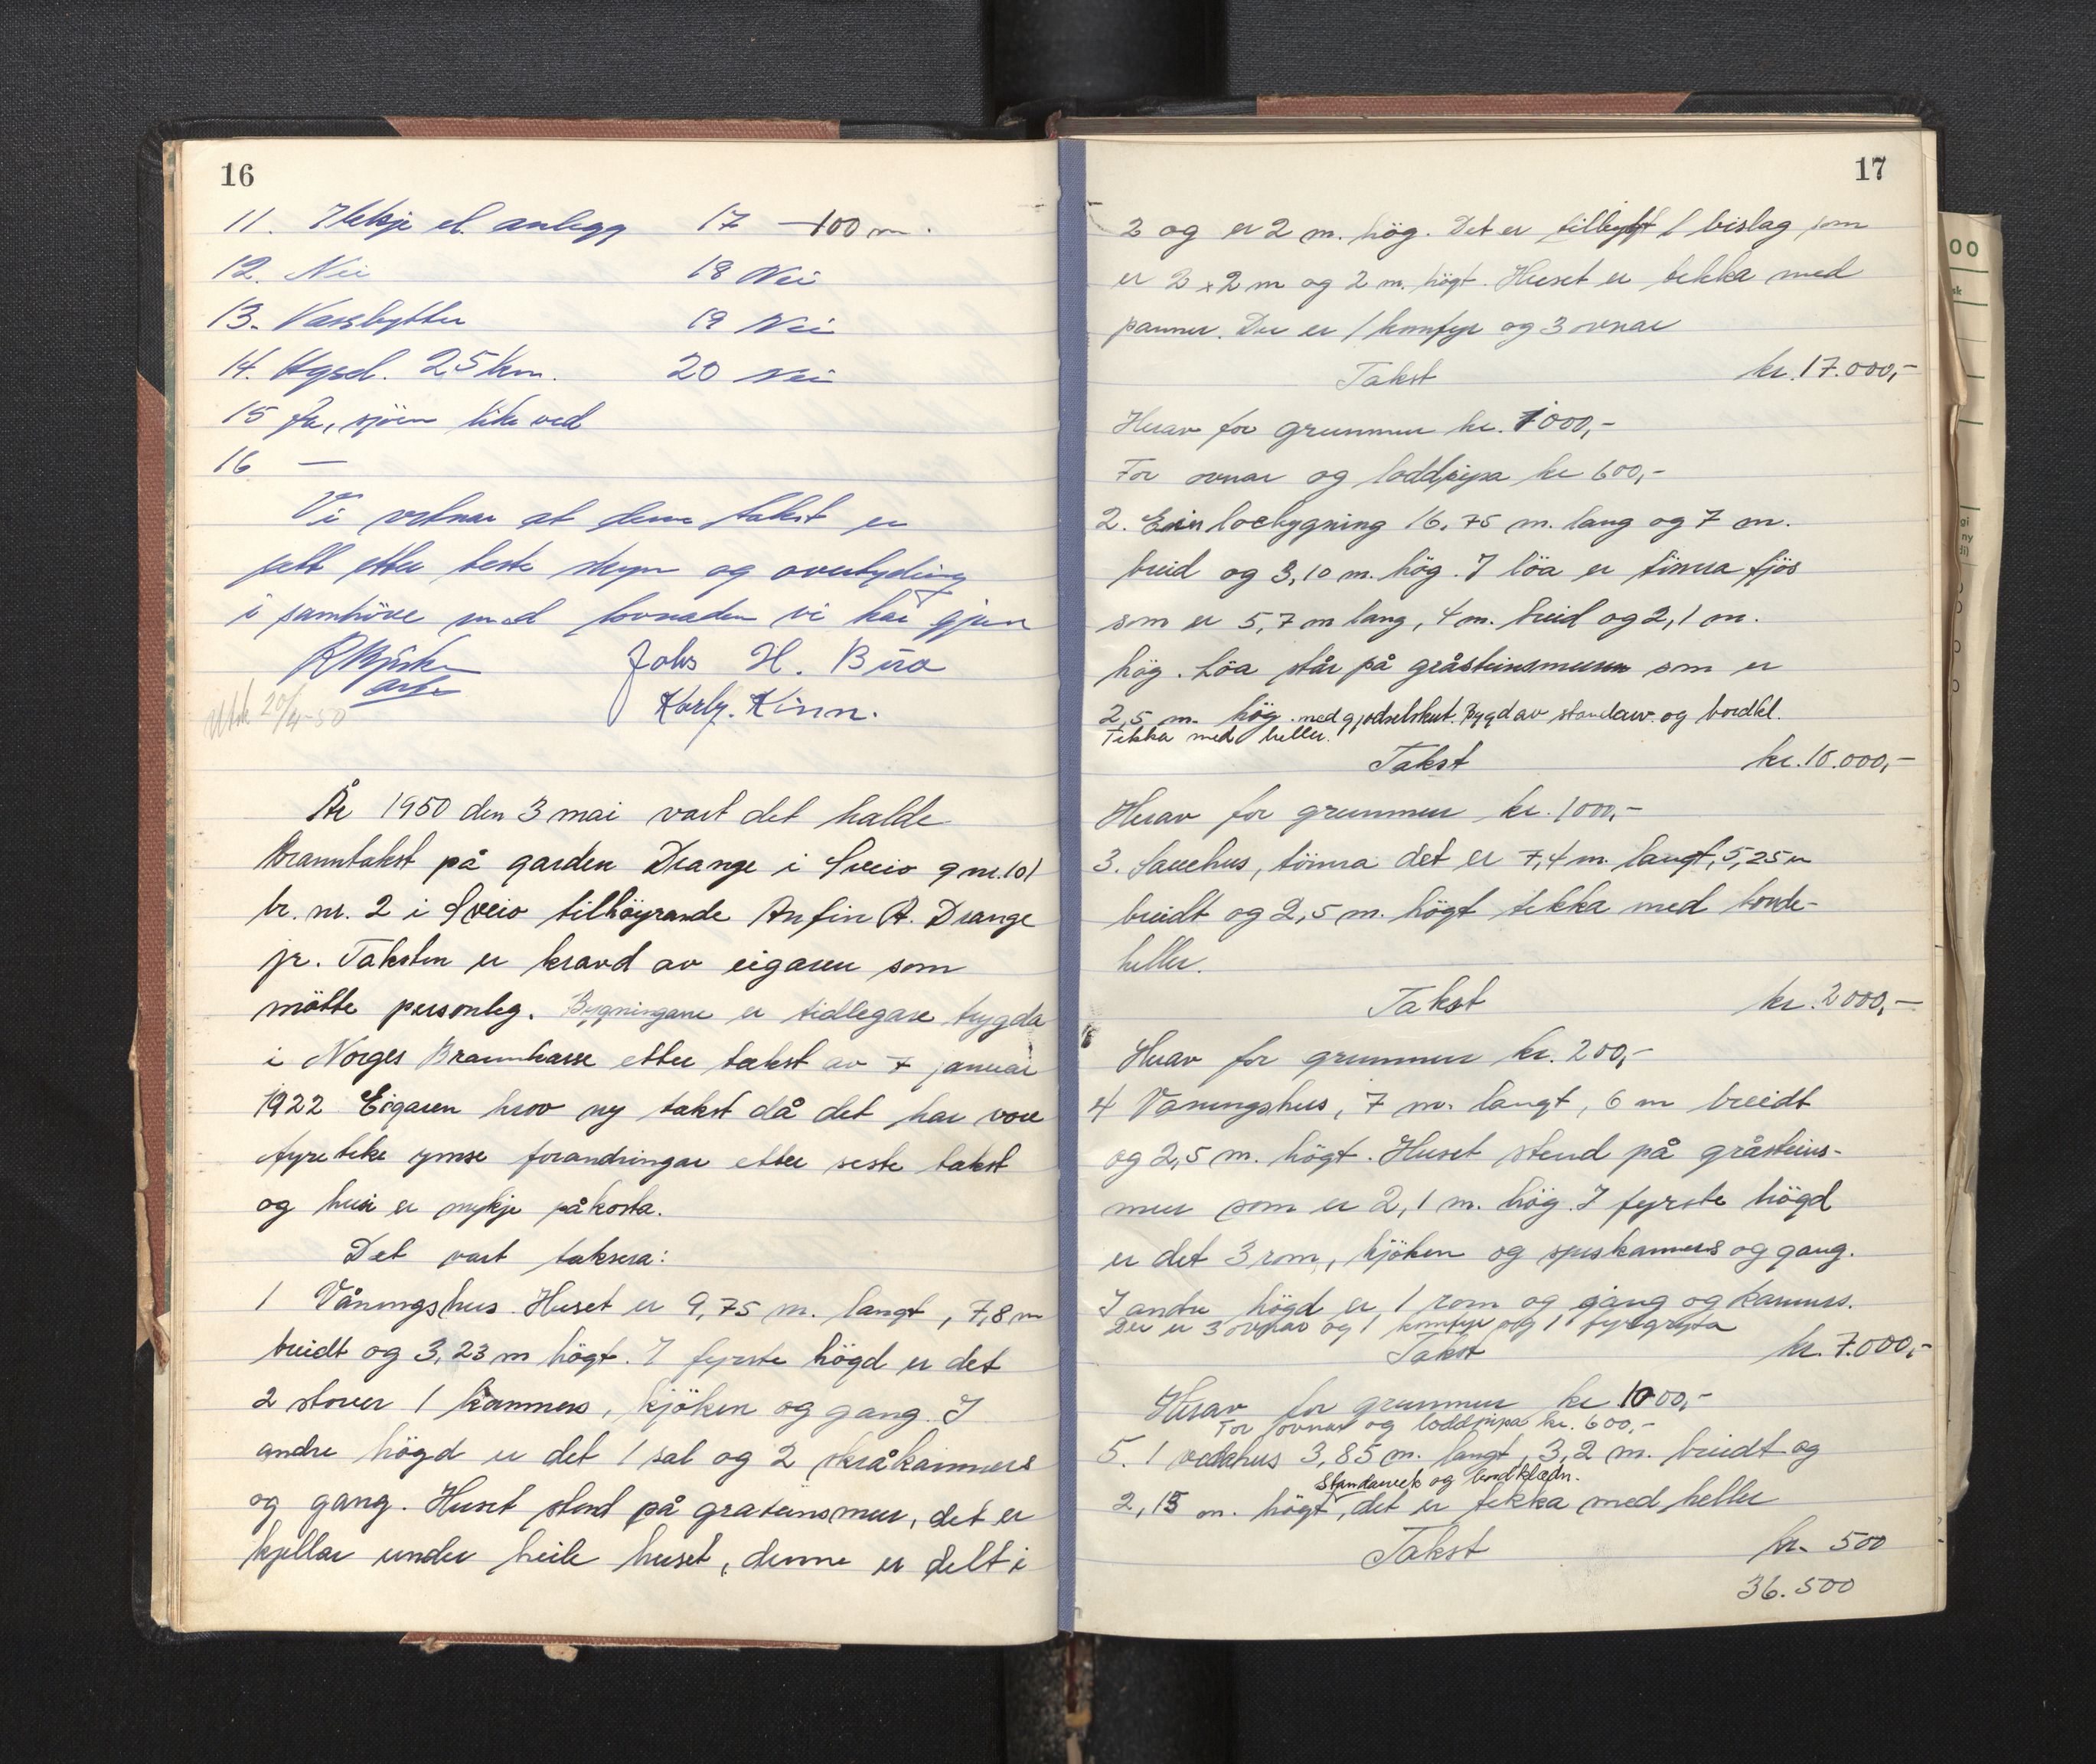 16
11. Ikkje el. anlegg 17 — 100 m.
12. Nei 18 Nei
13. Vassbytter 19 Nei
14. 25 km. 20 Nei
15 Ja, sjøen like ved
16 —
Vi vitnar at denne takst er
sett etter beste skyn og overtyding
i samhöve med lovnaden vi har gjeve
Johs H. Büo
Korly. Kinn.
Utsk 20/4-50
År 1950 den 3 mai vart det halde
Branntakst på garden Drange i Sveio g nr. 101
br. nr. 2 i Sveio tilhöyrande Anfin A. Drange
jr. Taksten er kravd av eigaren som
mötte personleg. Bygningane er tidlegare trygda
i Norges Brannkasse etter takst av 7 januar
1922 Eigaren krov ny takst då det har vore
fyreteke ymse forandringar etter siste takst
og husi er mykje påkosta.
Det vart taksera:
1 Våningshus. Huset er 9,75 m. langt, 7,8 m
breidt og 3,23 m högt. I fyrste högd er det
2 stover 1 kammers, kjöken og gang. I
andre högd er det 1 sal og 2 skråkammers
og gang. Huset stend på gråsteinsmur, det er
kjellar under heile huset, denne er delt i
17
2 og er 2 m. hög. Det er tilbygt 1 bislag som
er 2 x 2 m og 2 m. högt. Huset er tekka med
panner. Der er 1 komfyr og 3 ovnar
Takst kr. 17.000,-
Herav for grunnmur kr. 1000,-
For ovnar og loddpipa kr 600,-
2. Ein loebygning 16,75 m. lang og 7 m.
breid og 3,10 m. hög. I löa er timra fjös
som er 5,7 m lang, 4 m. breid og 2,1 m.
hög. Löa står på gråsteinsmurer som er
2,5 m. hög. med gjodselskut. Bygd av standarv. og bordkl.
Tekka med heller.
Takst kr. 10.000,-
Herav for grunnmur kr. 1000,-
3. Sauehus, tömra det er 7,4 m. langt, 5,25 m
breidt og 2,5 m. högt tekka med bonde-
heller.
Takst kr. 2000,-
Herav for grunnmur kr. 200,-
4 Våningshus, 7 m. langt, 6 m breidt
og 2,5 m. högt. Huset stend på gråsteins-
mur som er 2,1 m. hög. I fyrste högd
er det 3 rom, kjöken og speskammers og gang.
I andre högd er 1 rom og gang og kammers.
Der er 3 ovnar og 1 komfyr og 1 fyrgryta
Takst kr. 7.000,-
Herav for grunnmur kr 1000,-
For ovnar og loddpipa kr. 600,-
5. 1 vedahus 3,85 m. langt, 3,2 m. breidt og
Standarverk og bordklædn.
2,15 m. högt, det er tekka med heller
Takst kr. 500
36.500